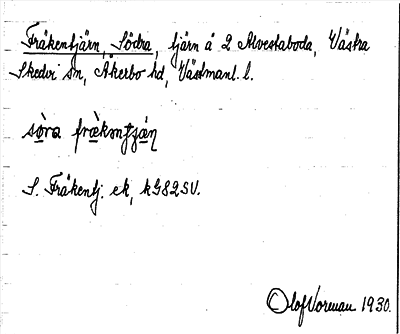 Fräkentjärn, Södra, tjärn å 2 Alvestaboda, Västra
Skedvi sn, Åkerbo hd, Västmanl. l.
sò̱ra fræ̀kɷntjǽṇ
S. Fräkentj. ek, kG82SV.
Olof Vorman 1930.